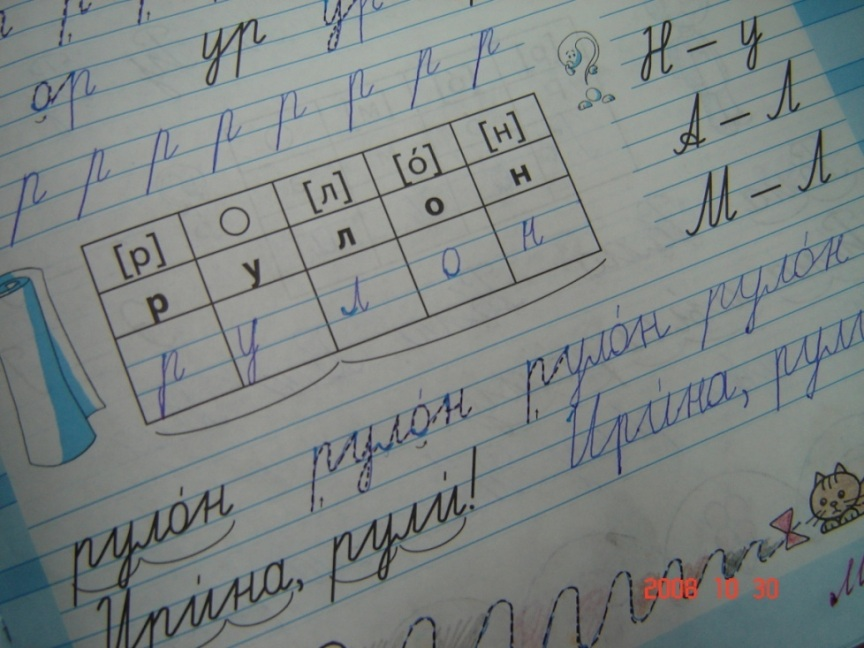 р р
ар ур ур
р р р р р р р р
Н – у
А – Л
М – Л
[р] [л] [о́] [н]
р у л о н
р у л о н
руло́н руло́н руло́н руло́н
Ири́на, рули́! Ири́на,
2008 10 30